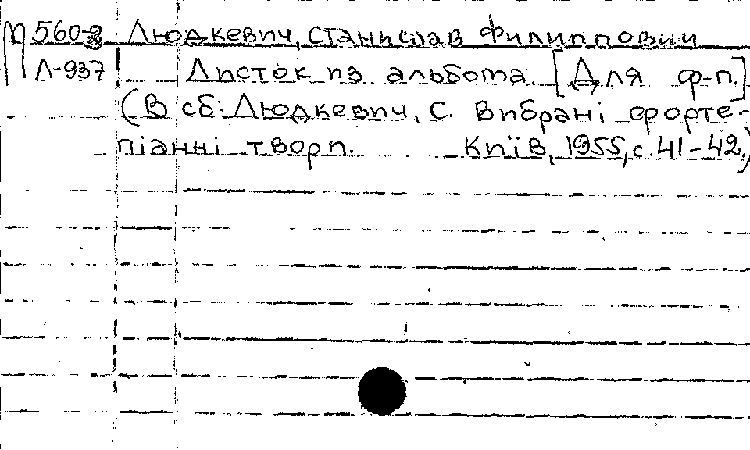 П 560-2 Людкевич, Станислав Филиппович
Л-937 Листок из альбома [Для ф-п.]
(В сб: Людкевич, С. Вибрані форте-
піанні твори. Київ, 1955, с. 41-42.)